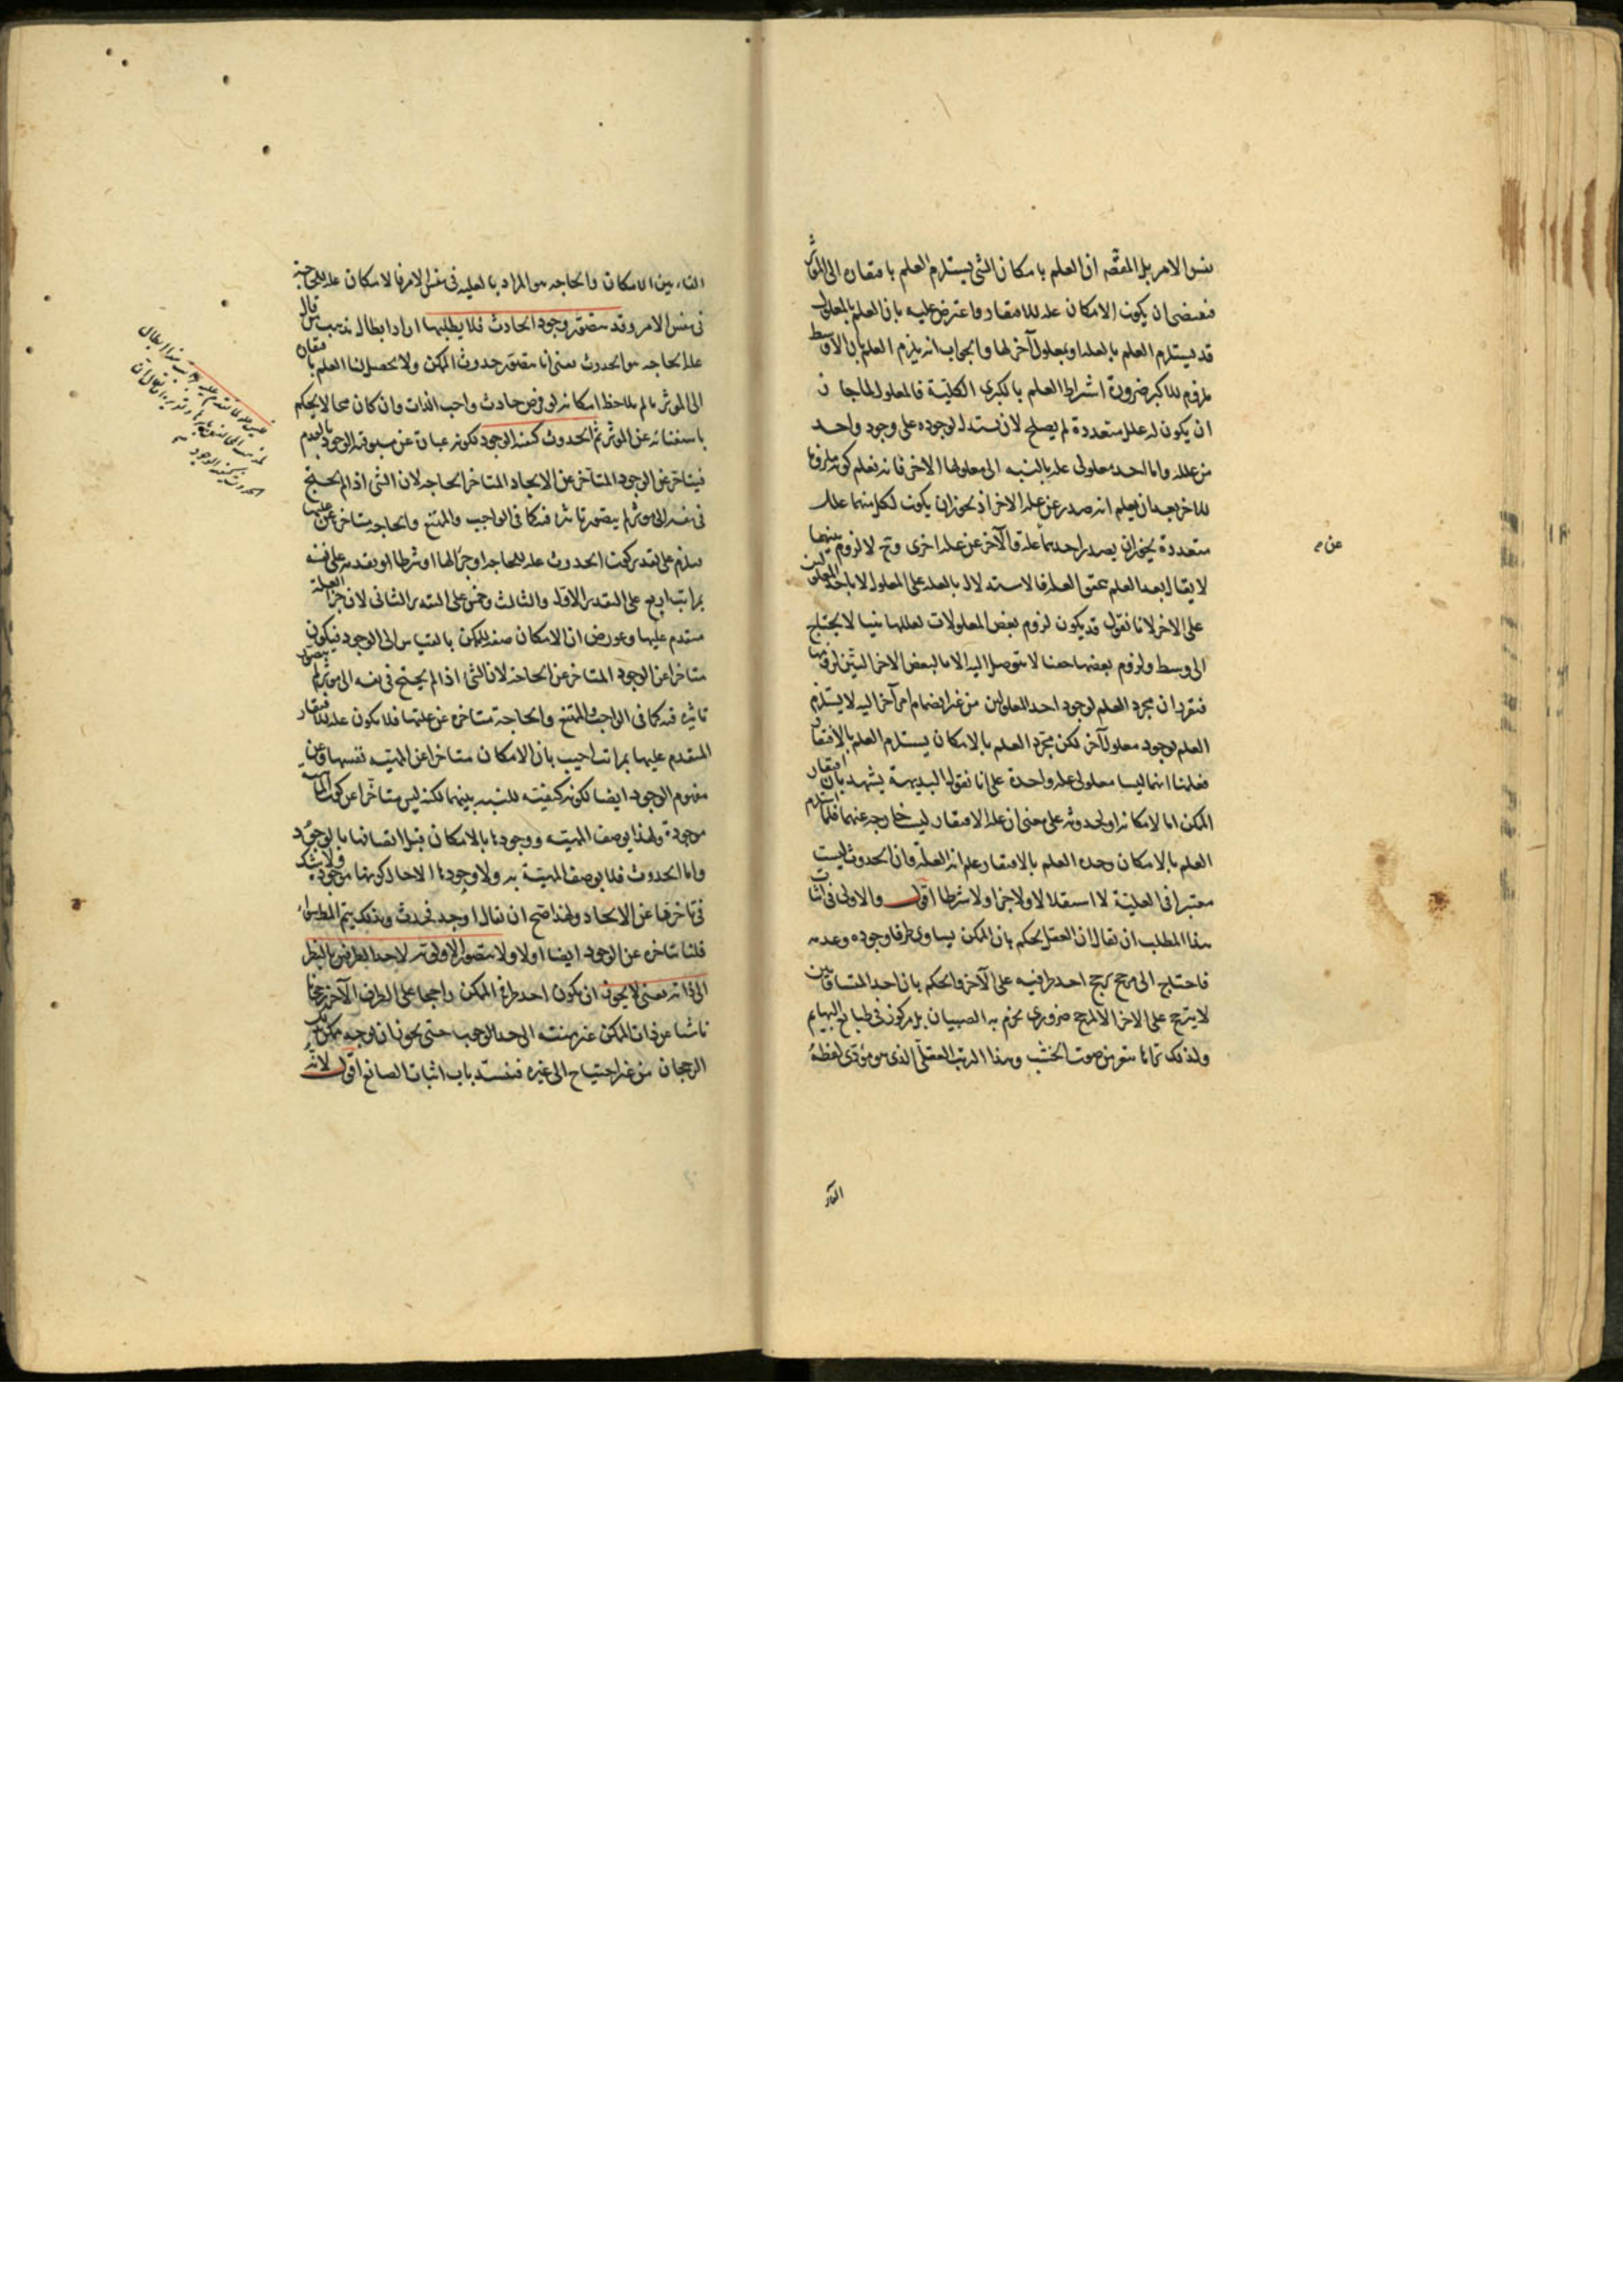 نفس الامر بل المقصد ان العلم بامكان الشئ يستلزم العلم بافتقاره الى المؤثر
فيقتضى ان يكون الامكان علة للافتقار واعترض عليه بان العلم بالمعلول
قد يستلزم العلم بالعلة او بمعلول آخر لها والجواب انه يلزم العلم بان الاوسط
ملزوم للاكبر ضرورة اشتراط العلم بالكبرى الكلية فالمعلول لما جاز
ان يكون له علل متعددة لم يصلح لان يستدل لوجوده على وجود واحد
من علله واما احد معلولى علة بالنسبه الى معلولها الاخر فانه نعلم كونه ملزوما
للاخر بعد ان يعلم انه صدر عن علة الاخر اذ يجوز ان يكون لكل منهما علل
متعددة يجوز ان يصدر احدهما عن علة والآخر عن علة اخرى وح لا لزوم بينهما
عن
لا يقال بعد العلم بتحقق العلة فالاستدلال بالعلة على المعلول لا باحد المعلولين
على الاخر لانا نقول قد يكون لزوم بعض المعلولات لعللها بينا لا يحتاج
الى وسط ولزوم بعضها خفيا لا يتوصل اليه الا بالبعض الاخر البين لزومها
فتقرر ان مجرد العلم لوجود احد المعلولين من غير انضمام امر آخر اليه لا يستلزم
العلم بوجود معلول آخر لكن مجرد العلم بالامكان يستلزم العلم بالافتقار
فعلمنا انهما ليسا معلولى علة واحدة على انا نقول البديهة يشهد بان افتقار
الممكن اما لامكانه او لحدوثه على معنى ان علة الافتقار ليست خارجه عنهما فلما استلزم
العلم بالامكان وحده العلم بالافتقار علم انه العلة وان الحدوث ليست
معتبرا فى العلية لا استقلالا ولا جزا ولا شرطا اقول والاولى فى اثبات
هذا المطلب ان يقال ان العقل يحكم بان الممكن يساوى طرفا وجوده وعدمه
فاحتاج الى مرجح يرجح احد طرفيه على الآخر والحكم بان احد المتساويين
لا يترجح على الاخر الا لمرجح ضرورى يجزم به الصبيان بل مركوز فى طباع البهايم
ولذلك تراها تنفر من صوت الخشب وهذا الترتب العقلى الذى هو مؤدى لفظة
الفاء
الفاء بين الامكان والحاجه هو المراد بالعليه فى نفس الامر فالامكان علة للحاجة
فى نفس الامر وقد يتصور وجود الحادث فلا يطلبها اراد ابطال مذهب من قال
علة الحاجه هو الحدوث يعنى انا نتصور حدوث الممكن ولا يحصل لنا العلم بافتقاره
الى المؤثر ما لم يلاحظ امكانه لو فرض حادث واجب الذات وان كان محالا يحكم
باستغنائه عن المؤثر ثم الحدوث كيفية الوجود لكونه عبارة عن مسبوقية الوجود بالعدم
فيتاخر عن الوجود المتاخر عن الايجاد المتاخر عن الحاجه لان الشئ اذا لم يحتج
فى نفسه الى مؤثر لم يتصور تاثيره فيه كما فى الواجب والممتنع والحاجه متاخرة عن علتها
فيلزم على تقدير كون الحدوث علة للحاجه او جزأ لها او شرطا لها تقدمه على نفسه
بمراتب اربع على التقدير الاول والثالث وخمس على التقدير الثانى لان جزء العلة
متقدم عليها وعورض ان الامكان صفة للممكن بالقياس الى الوجود فيكون
متاخرا عن الوجود المتاخر عن الحاجة لان الشئ اذا لم يحتج فى نفسه الى مؤثر لم يتصور
تاثيره فيه كما فى الواجب والممتنع والحاجة متاخرة عن علتها فلا يكون علة للافتقار
المتقدم عليها بمراتب اجيب بان الامكان متاخر عن المهية نفسها وعن
مفهوم الوجود ايضا لكونه كيفية للنسبه بينهما لكنه ليس متاخرا عن كون المهية
موجودة ولهذا يوصف المهية ووجودها بالامكان قبل اتصافها بالوجود
واما الحدوث فلا يوصف المهية به ولا وجودها الا حال كونها موجودة ولا شك
فى تاخرها عن الايجاد ولهذا صح ان يقال اوجد فحدث وبذلك يتم المطلوب سواء
قلنا بتاخره عن الوجود ايضا اولا ولا يتصور الاولوية لاحد الطرفين بالنظر
الى ذاته يعنى لا يجوز ان يكون احد طرفى الممكن راجحا على الطرف الآخر رجحانا
ناشئا عن ذات الممكن غير منته الى حد الوجوب حتى يجوز ان يوجد ممكن بذلك
الرجحان من غير احتياج الى غيره فينسد باب اثبات الصانع اقول لانه